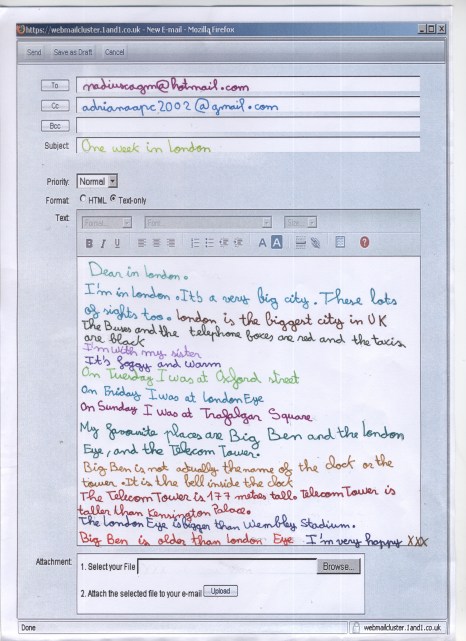 https://webmailcluster.1and1.co.uk - New E-mail - Mozilla Firefox
Send Save as Draft Cancel
To nadiuscagm@hotmail.com
Cc adrianaapc2002@gmail.com
Bcc
Subject: One week in London
Priority: Normal
Format: HTML Text-only
Text:
B I U A A
Dear in london.
I'm in london. It's a very big city. These lots
of sights too. london is the biggest city in UK
The Buses and the telephone boxes are red and the taxis
are black
I'm with my sister
It's foggy and warm
On Tuesday I was at Oxford street
On Friday I was at London Eye
On Sunday I was at Trafalgar Square
My favourite places are Big Ben and the london
Eye, and the Telecom Tower.
Big Ben is not actually the name of the clock or the
tower. It is the bell inside the clock
The Telecom Tower is 177 metres tall. Telecom Tower is
taller than Kensington Palace.
The London Eye is bigger than Wembley Stadium.
Big Ben is older than london Eye I'm very happy XXX
Attachment:
1. Select your File Browse...
2. Attach the selected file to your e-mail Upload
Done webmailcluster.1and1.co.uk